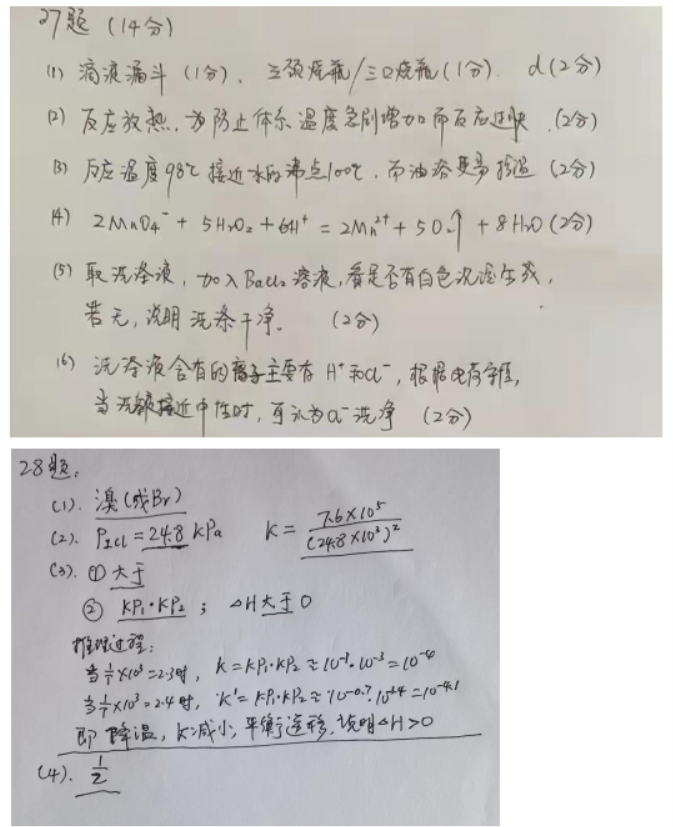 27题 (14分)
(1) 滴液漏斗 (1分)、三颈烧瓶/三口烧瓶(1分) d(2分)
(2) 反应放热,为防止体系温度急剧增加而反应过快 (2分)
(3) 反应温度98℃接近水的沸点100℃,而油浴更易控温 (2分)
(4) 2MnO₄⁻ + 5H₂O₂ + 6H⁺ = 2Mn²⁺ + 5O₂↑ + 8H₂O (2分)
(5) 取洗涤液,加入BaCl₂溶液,看是否有白色沉淀生成,
若无,说明洗涤干净。 (2分)
(6) 洗涤液含有的离子主要有H⁺和Cl⁻,根据电荷守恒,
当洗涤接近中性时,可认为Cl⁻洗净 (2分)
28题:
(1). 溴(或Br)
(2). P_ICl = 24.8 kPa K = 7.6×10⁵/(24.8×10³)²
(3). ① 大于
② KP₁·KP₂ ; △H大于0
推理过程:
当1/T×10³=2.3时, K=KP₁·KP₂≈10⁻¹·10⁻³=10⁻⁴
当1/T×10³=2.4时, K'=KP₁·KP₂≈10⁻⁰·⁷·10⁻³·⁴=10⁻⁴·¹
即降温,K减小,平衡逆移,说明△H>0
(4). 1/2